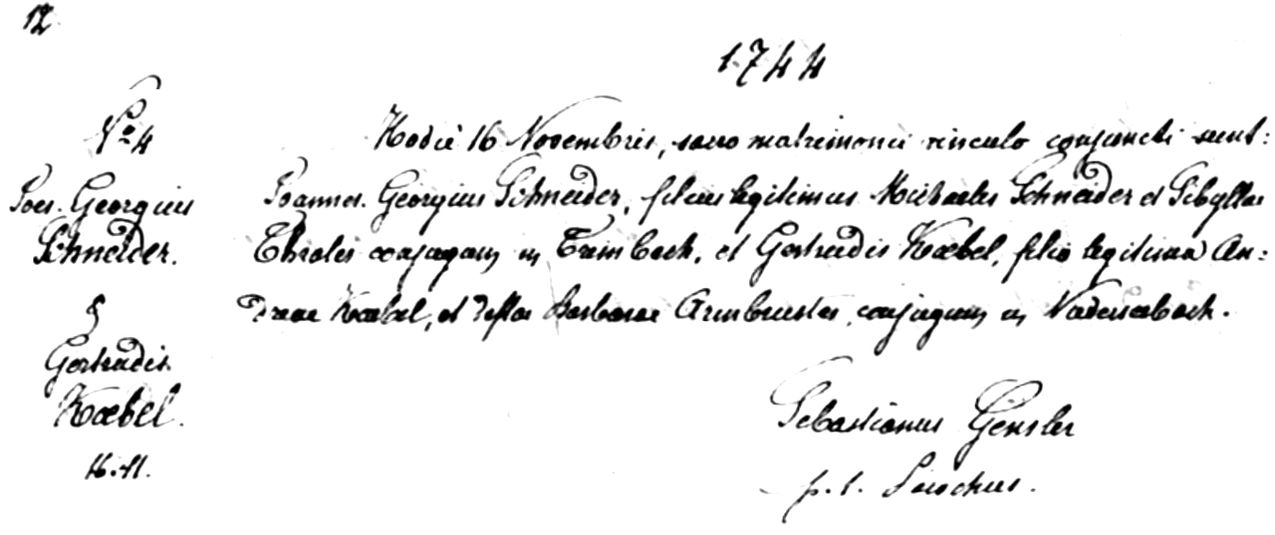 12
1744
No 4
Joes. Georgius
Schneider.
&
Gertrudis
Koebel.
16.11.
Hodiè 16 Novembris, sacro matrimonii vinculo conjuncti sunt:
Joannes Georgius Schneider, filius legitimus Michaelis Schneider et Sibyllae
conjugum in Trimbach, et Gertrudis Koebel, filia legitima An-
dreae Koebel, et deftae Barbarae Armbruster, conjugum in
Sebastianus Gensler
p. t. Parochus.